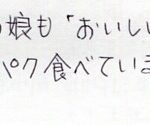 娘も「おいしい
パク食べていま